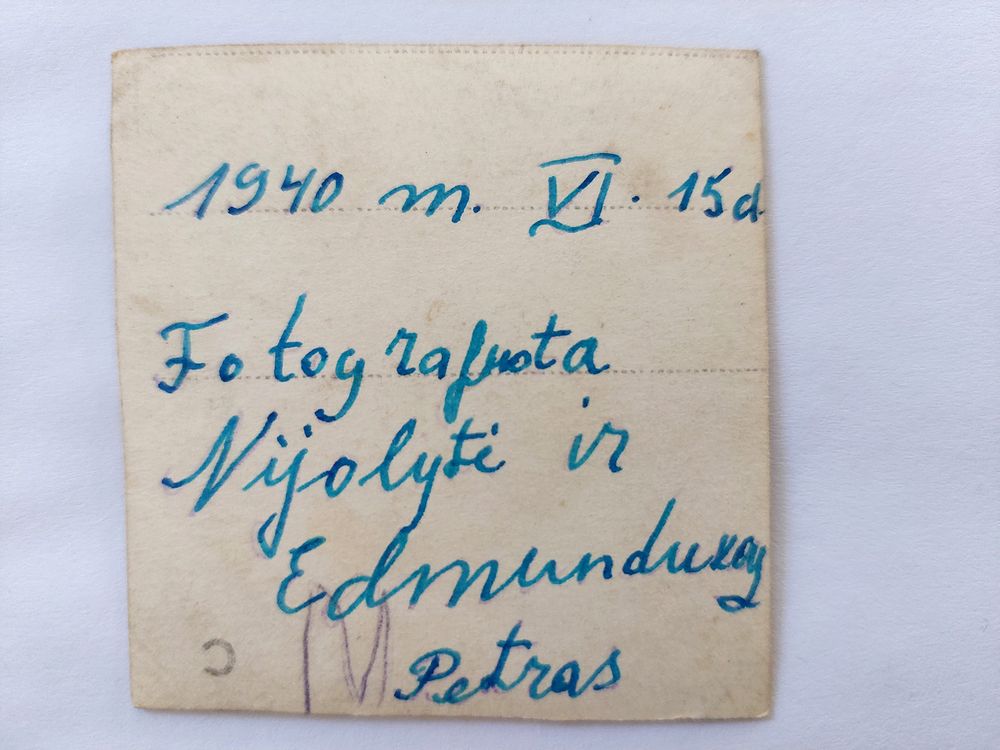 1940 m. VI. 15d
Fotografuota
Nijolytė ir
Edmundukas
Petras